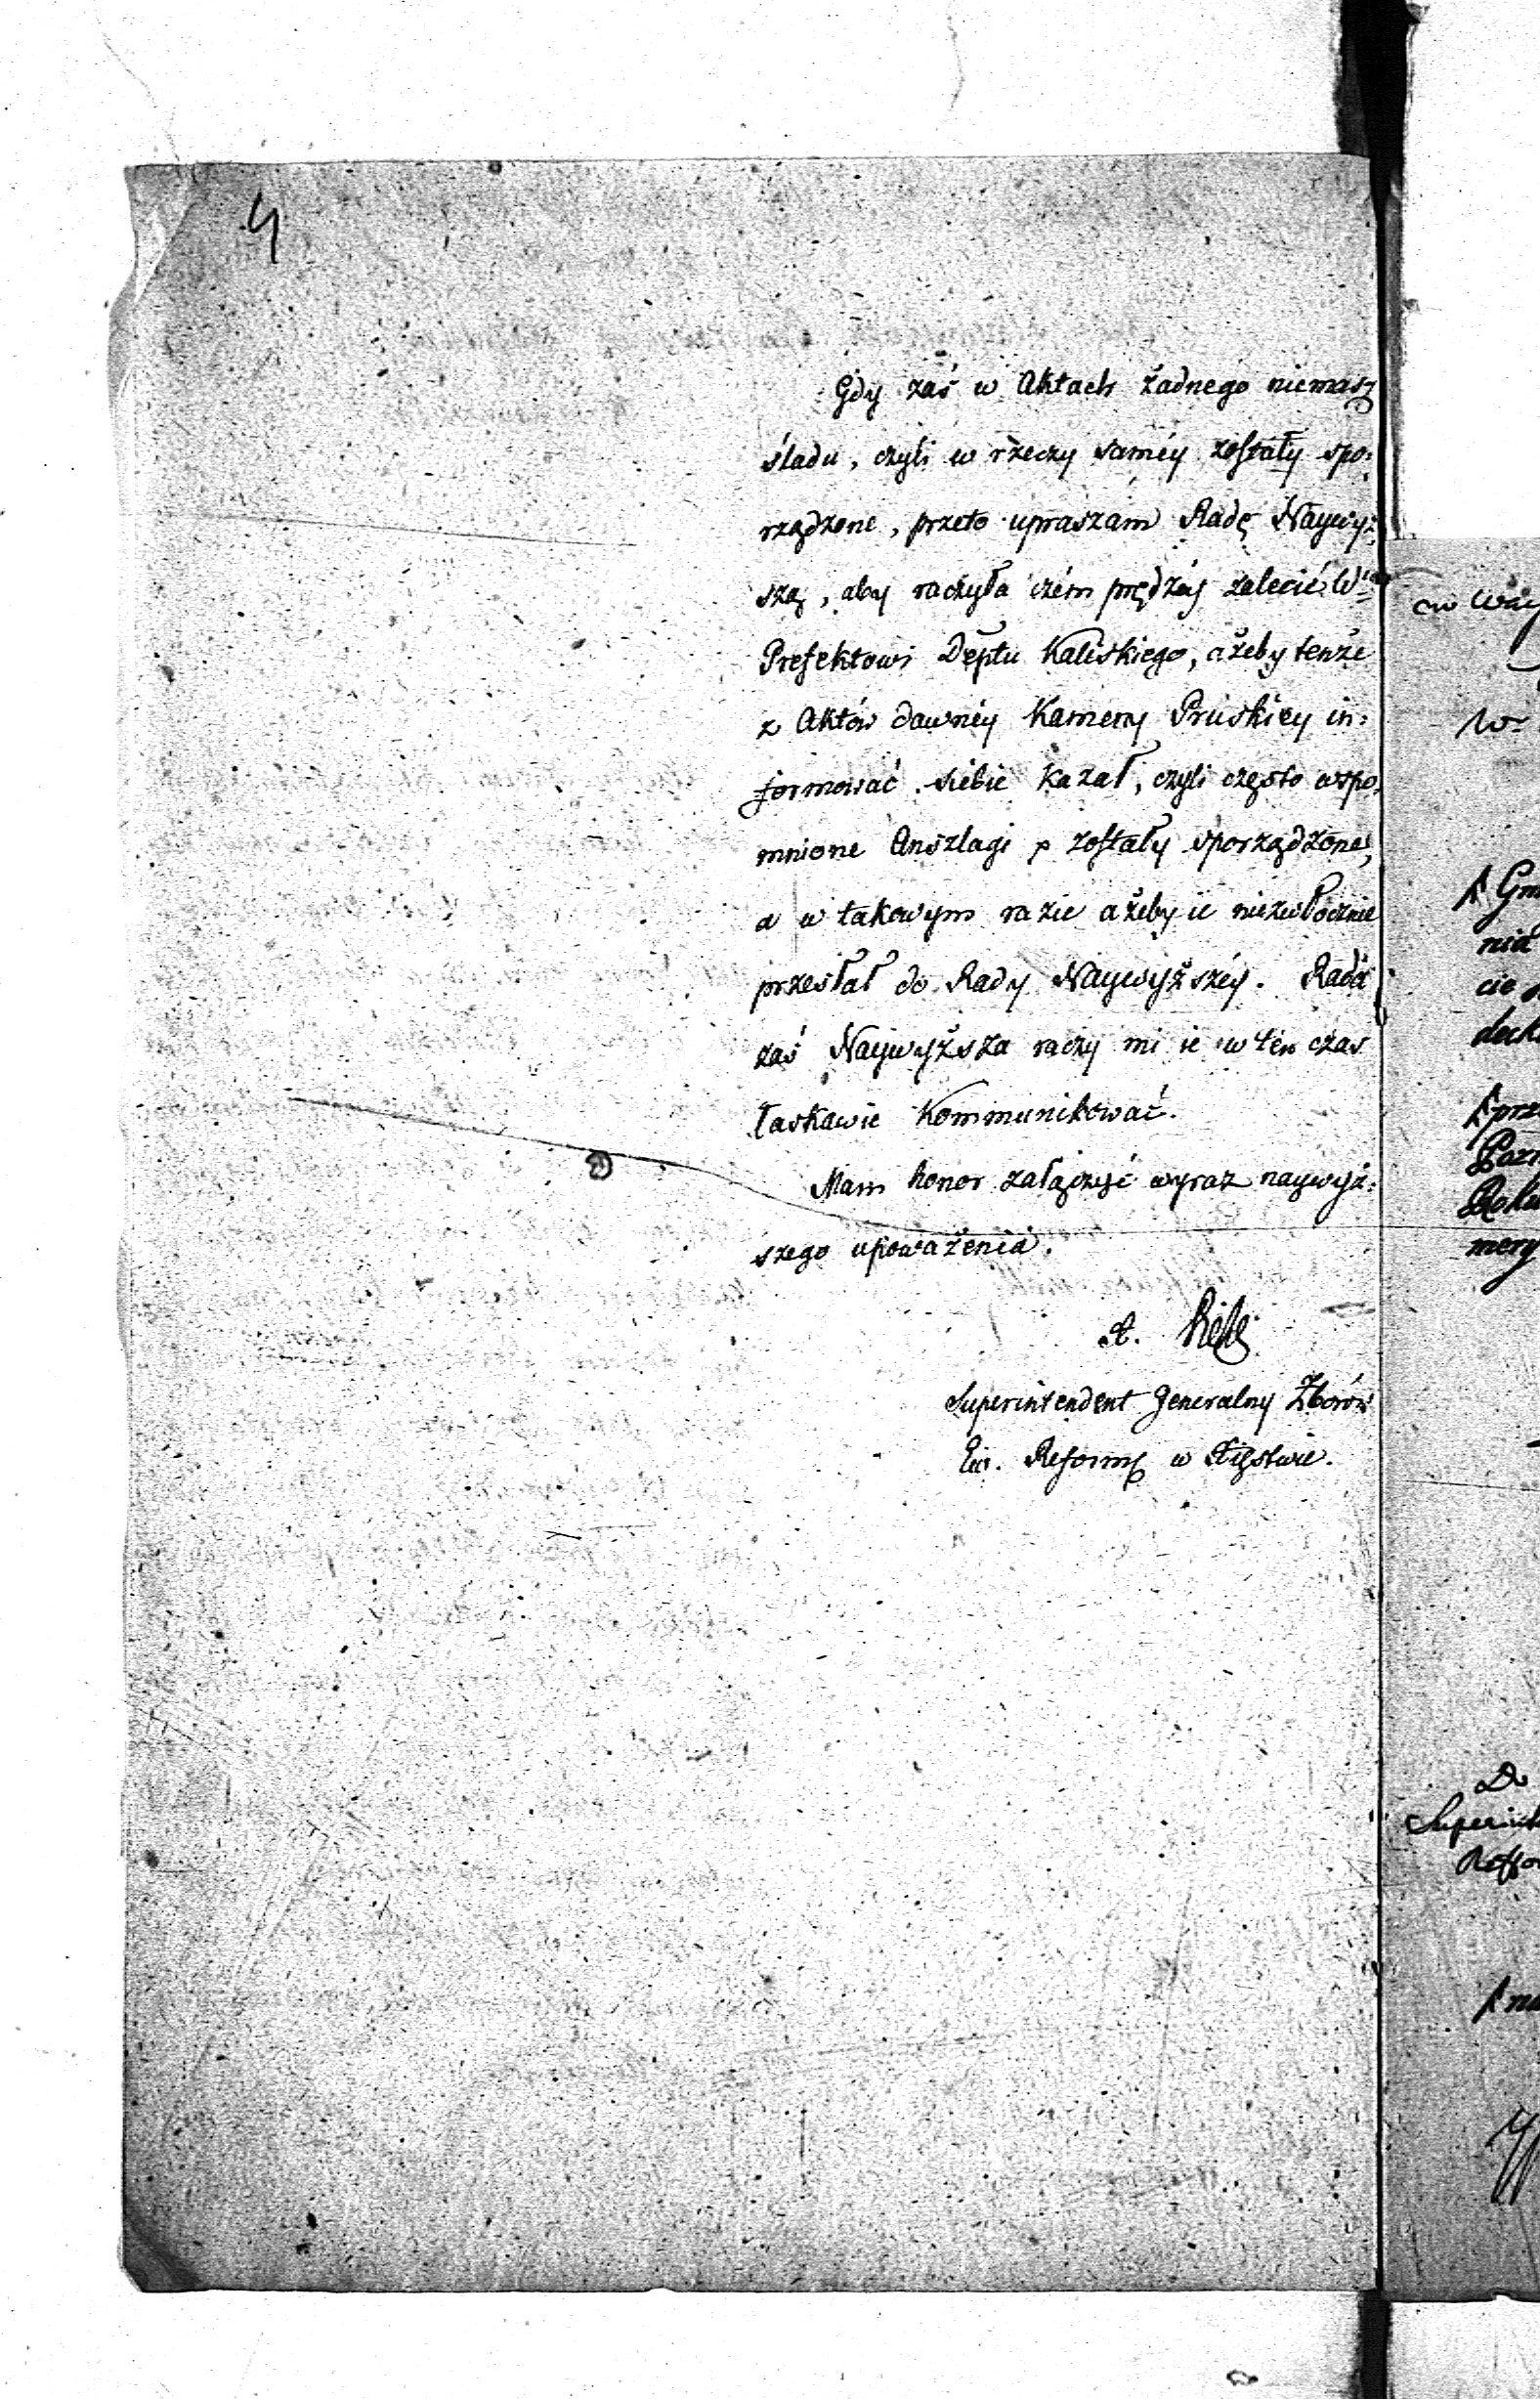 4
Gdy zaś w Aktach żadnego niemasz
śladu, czyli w rzeczy saméy zostały spo:
rządzone, przeto upraszam Radę Naywyż:
szą, aby raczyła czém prędzéy zalecić W
Prefektowi Deptu Kaliskiego, ażeby tenże
z Aktów dawnéy Kamery Pruskiéy in:
formować siebie kazał, czyli często wspo:
mnione Anszlagi zostały sporządzone,
a w takowym razie ażeby ie niezwłocznie
przesłał do Rady Naywyższéy. Rada
zaś Naywyższa raczy mi ie w ten czas
łaskawie kommunikować.
Mam honor załączyć wyraz naywyż:
szego upoważenia.
Superintendent Generalny Zborów
Ew. Reform w Xięstwie.
nia
cie
mery
Do